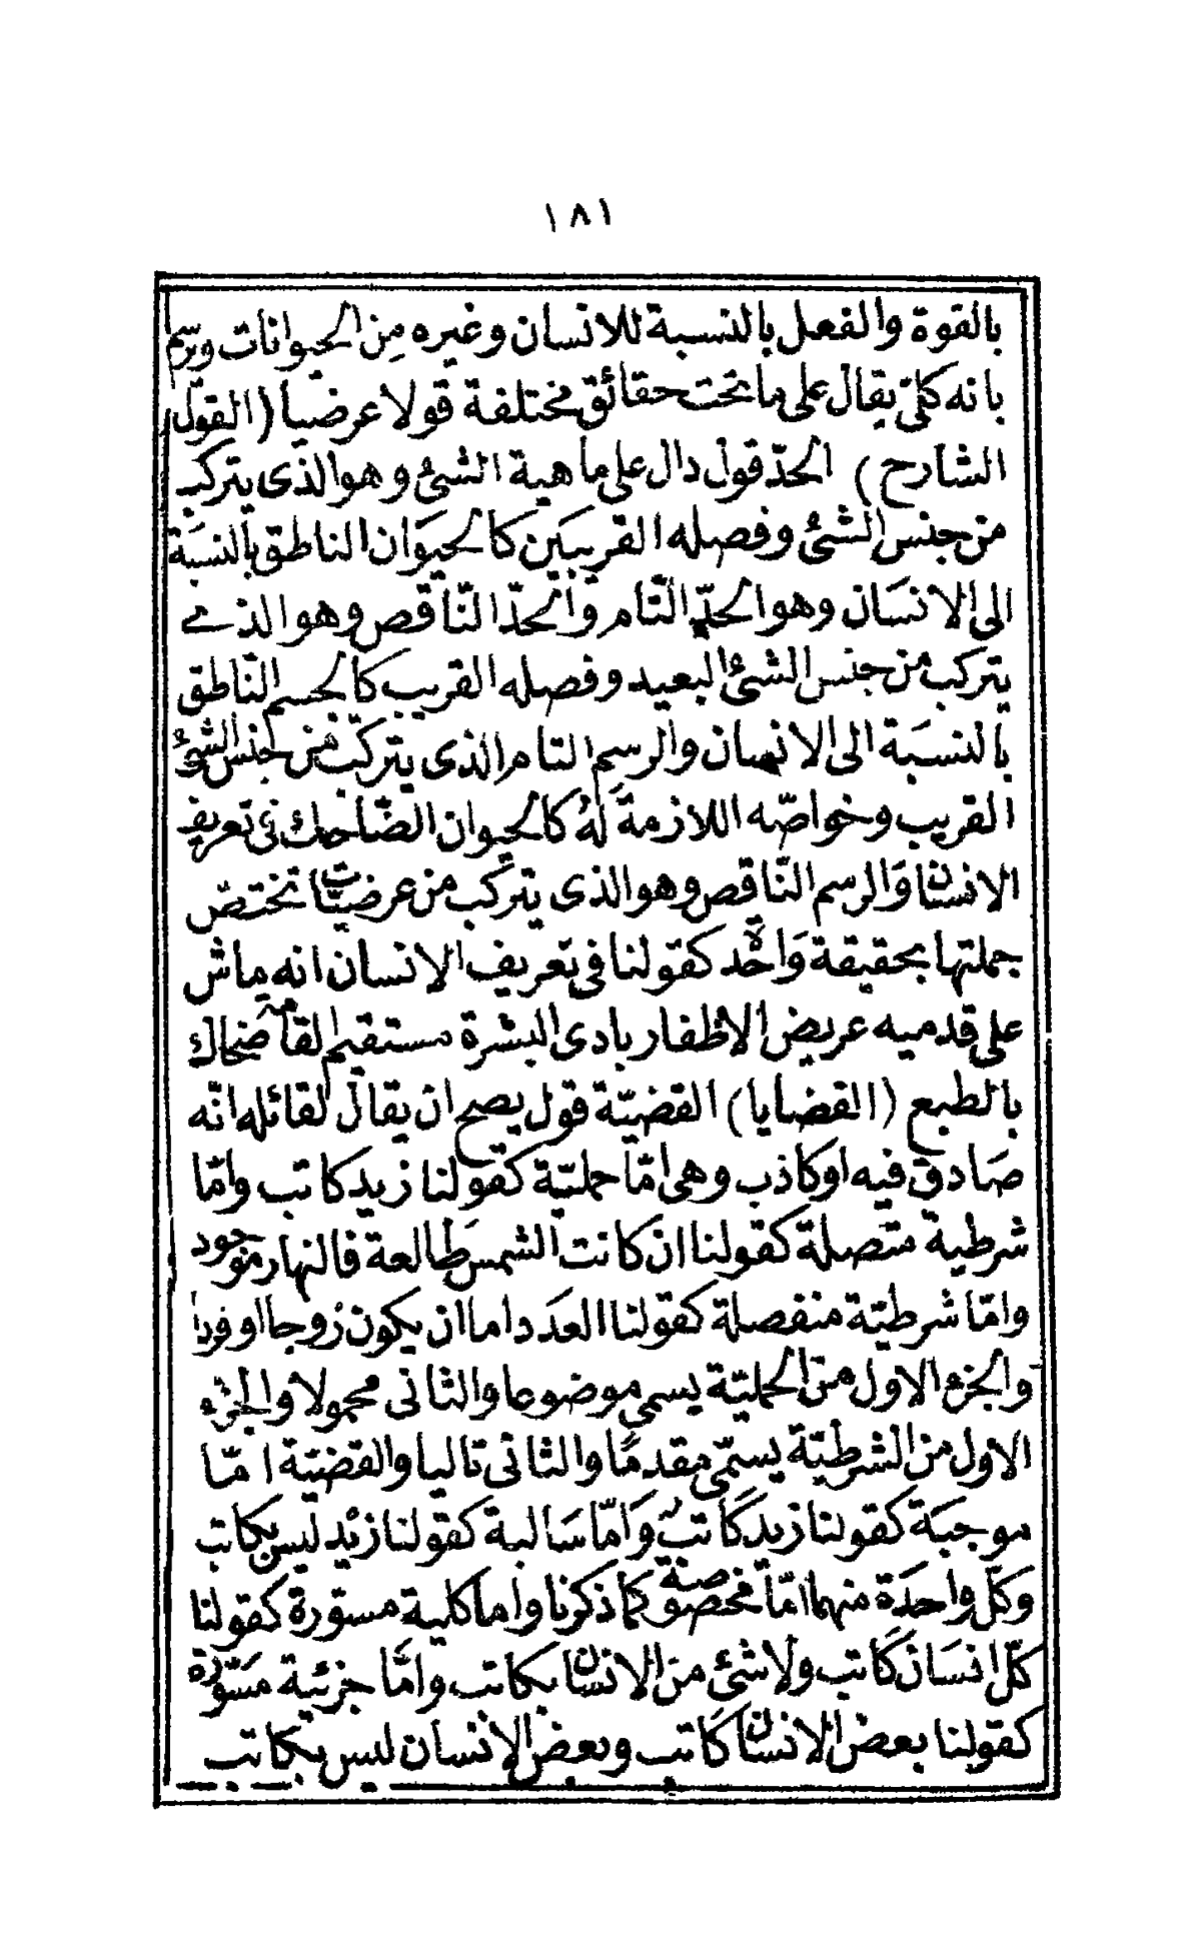 ١٨١
بالقوة والفعل بالنسبة للانسان وغيره مِن الحيوانات ويرسم
بانه كلّىّ يقال على ما تحت حقائق مختلفة قولا عرضيا (القول
الشارح) الحدّ قول دال على ماهية الشئ وهو الذى يتركب
من جنس الشئ وفصله القريبَين كالحيَوَان الناطق بالنسبَة
الى الانسَان وهو الحدّ التّام والحدّ النّاقص وهو الذے
يتركب من جنس الشئ البعيد وفصله القريب كالجسم النّاطق
بالنسبَة الى الانسان والرسم التام الذى يتركّب من جنس الشئ
القريب وخواصّه اللازمة لَهُ كالحيوان الضّاحك فى تعريف
الانسان وَالرسم النّاقص وهو الذى يتركّب من عرضيّات تختصّ
جملتها بحقيقة وَاحدة كقولنا فى تعريف الانسان انه ماش
على قدميه عريض الاظفار بادى البشرة مستقيم القامة ضحاك
بالطبع (القضايا) القضيّة قول يصح ان يقال لقائله انّه
صَادق فيه او كاذب وهى امّا حمليّة كقولنا زيد كاتب وامّا
شرطية متصلة كقولنا ان كانت الشمس طالعة فالنهار موجود
وامّا شرطيّة منفصلة كقولنا العَدَد اما ان يكون زوجا او فردا
والجزء الاول من الحمليّة يسمى موضوعا والثانى محمولا والجزء
الاول من الشرطيّة يسمّى مقدمًا والثانى تاليا والقضيّة امّا
موجبَة كقولنا زيد كَاتبٌ وَامّا سَالبة كقولنا زيد ليس بكاتب
وكلّ واحدَة منهما امّا مخصوصة كما ذكرنا واما كلية مسوّرة كقولنا
كلّ انسَان كَاتب ولا شئ من الانسان بكاتب وامّا جزئية مسَوّرة
كقولنا بعض الانسان كَاتب وبعض الانسان ليس بكاتب